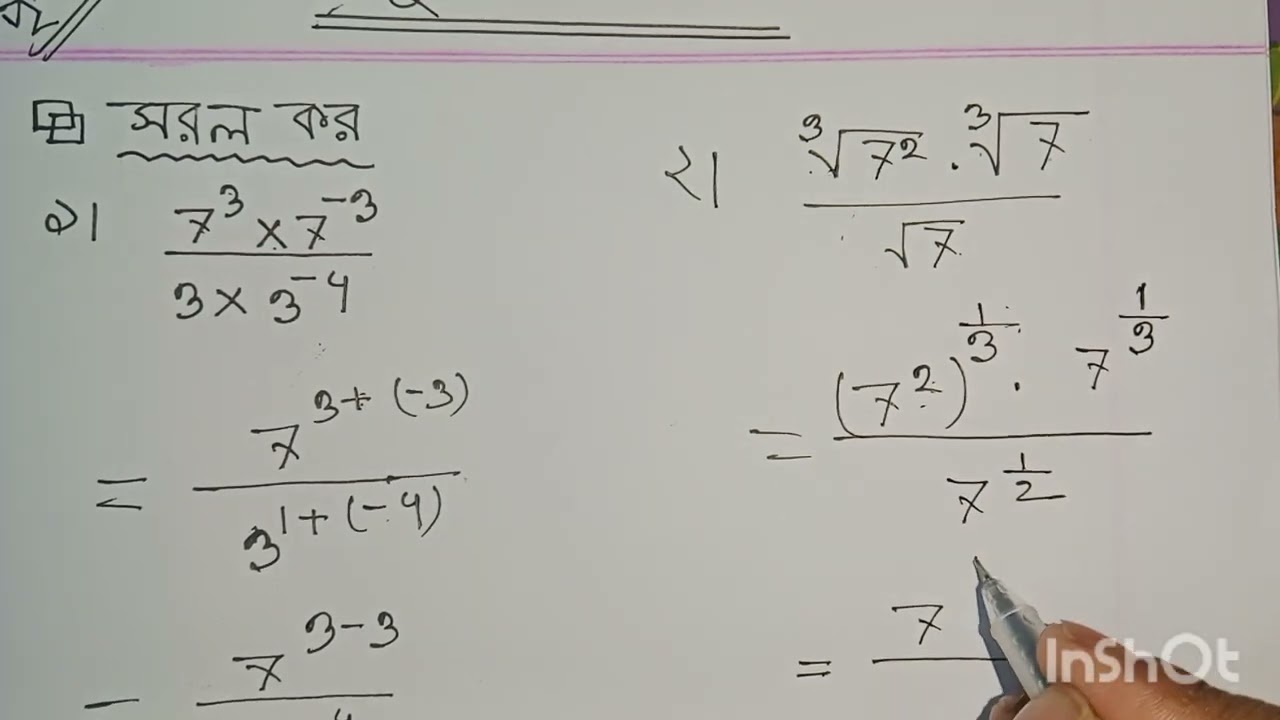 সরল কর
১। 7³ × 7⁻³ / 3 × 3⁻⁴
= 7^(3 + (-3)) / 3^(1 + (-4))
= 7^(3 - 3)
২। ∛7² . ∛7 / √7
= (7²)^(1/3) . 7^(1/3) / 7^(1/2)
= 7
InShOt